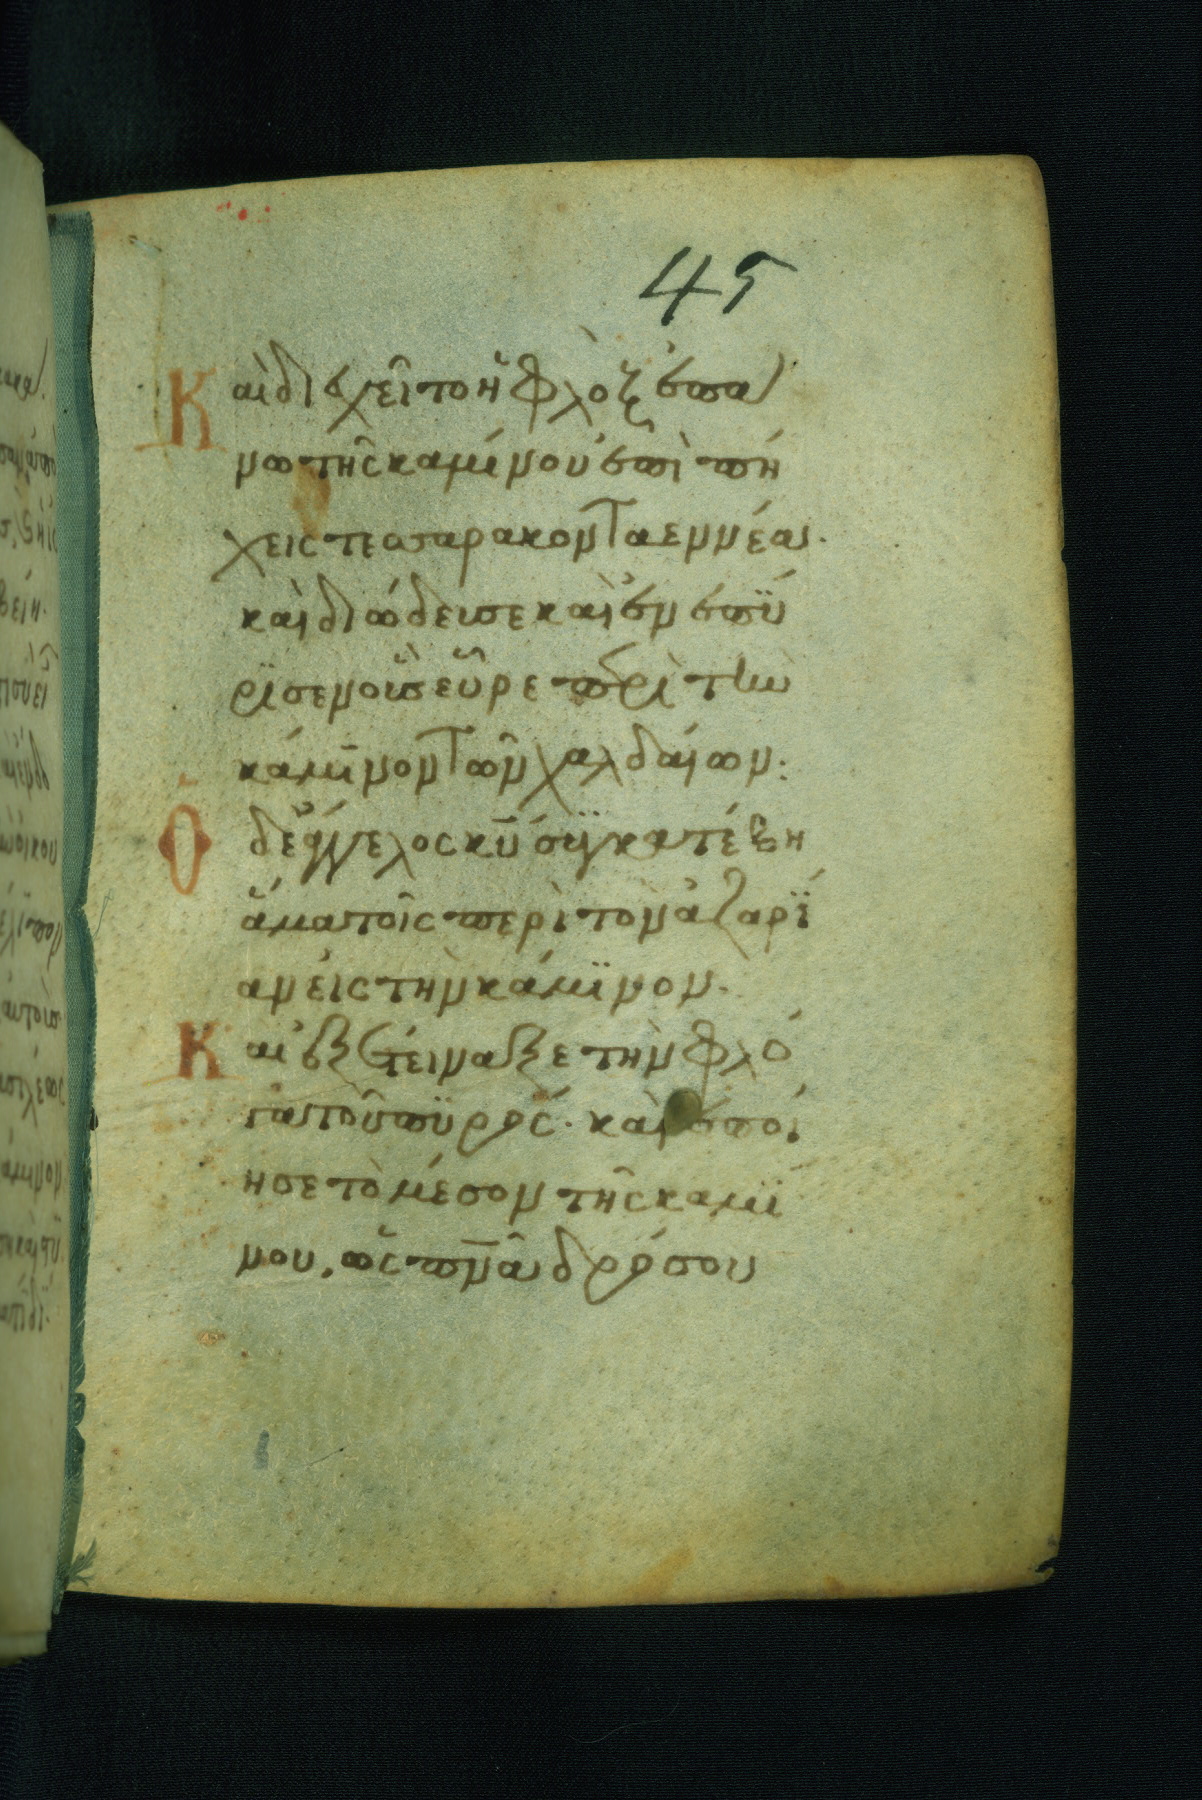 45
Καὶ διεχεῖτο ἡ φλὸξ ἐπά
νω τῆς καμίνου ἐπὶ πή
χεις τεσσαρακονταεννέα.
καὶ διώδευσε καὶ ἐνεπύ
ρϊσεν οὓς εὗρε περὶ τὴν
κάμϊνον τῶν χαλδαίων:
Ὁ δὲ ἄγγελος κῡ συγκατέβη
ἅμα τοῖς περὶ τὸν ἀζαρΐ
αν εἰς τὴν κάμϊνον.
Καὶ ἐξετείναξε τὴν φλό
γα τοῦ πϋρός. καὶ ἐποί
ησε τὸ μέσον τῆς καμΐ
νου, ὡς πν̄α δρόσου